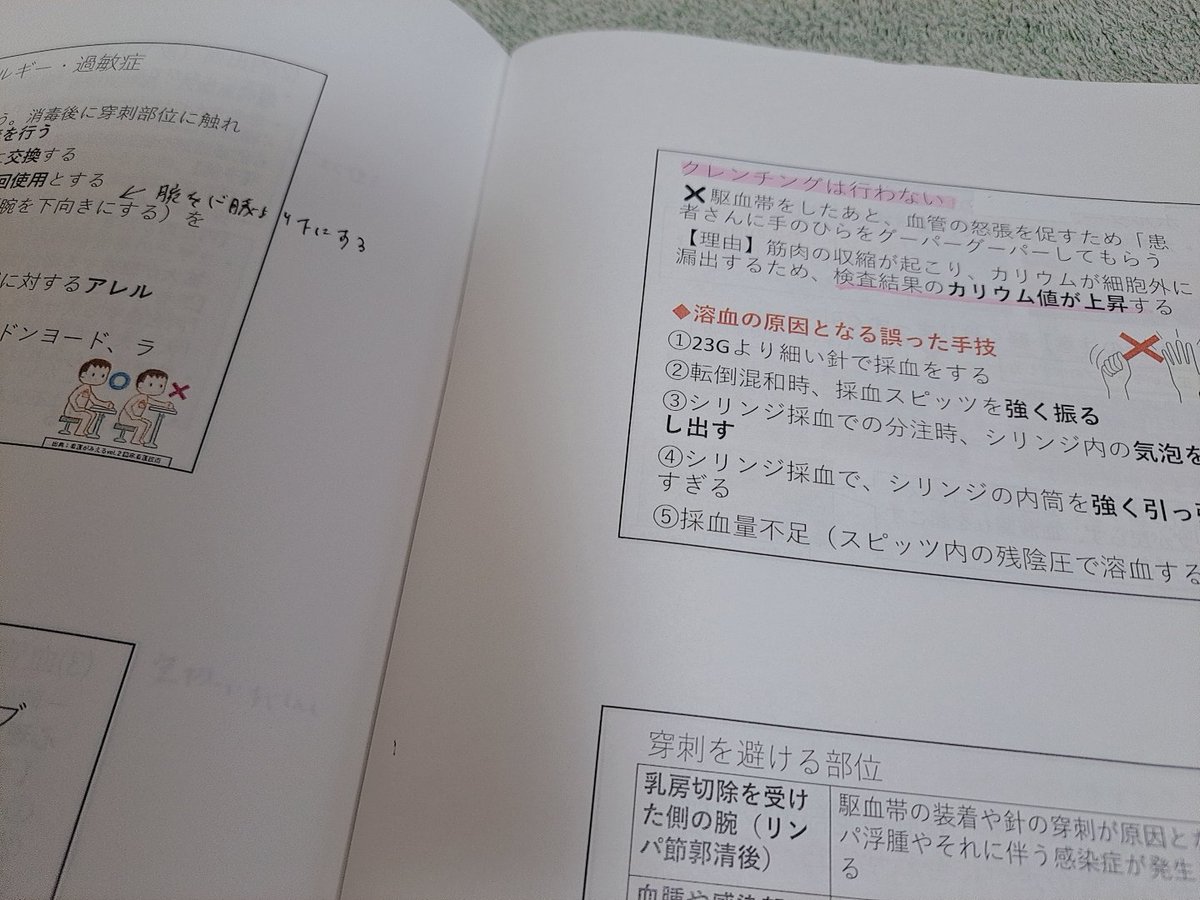 ルギー・過敏症
う。消毒後に穿刺部位に触れ
を行う
交換する
回使用とする
腕を下向きにする）を
に対するアレル
ドンヨード、ラ
出典：看護がみえるvol.2臨床看護技術
クレンチングは行わない
✕駆血帯をしたあと、血管の怒張を促すため「患
者さんに手のひらをグーパーグーパーしてもらう
【理由】筋肉の収縮が起こり、カリウムが細胞外に
漏出するため、検査結果のカリウム値が上昇する
◆溶血の原因となる誤った手技
①23Gより細い針で採血をする
②転倒混和時、採血スピッツを強く振る
③シリンジ採血での分注時、シリンジ内の気泡を
し出す
④シリンジ採血で、シリンジの内筒を強く引っ
すぎる
⑤採血量不足（スピッツ内の残陰圧で溶血する
ブ
穿刺を避ける部位
乳房切除を受け
た側の腕（リン
パ節郭清後）
駆血帯の装着や針の穿刺が原因と
パ浮腫やそれに伴う感染症が発生
る
血腫や感染